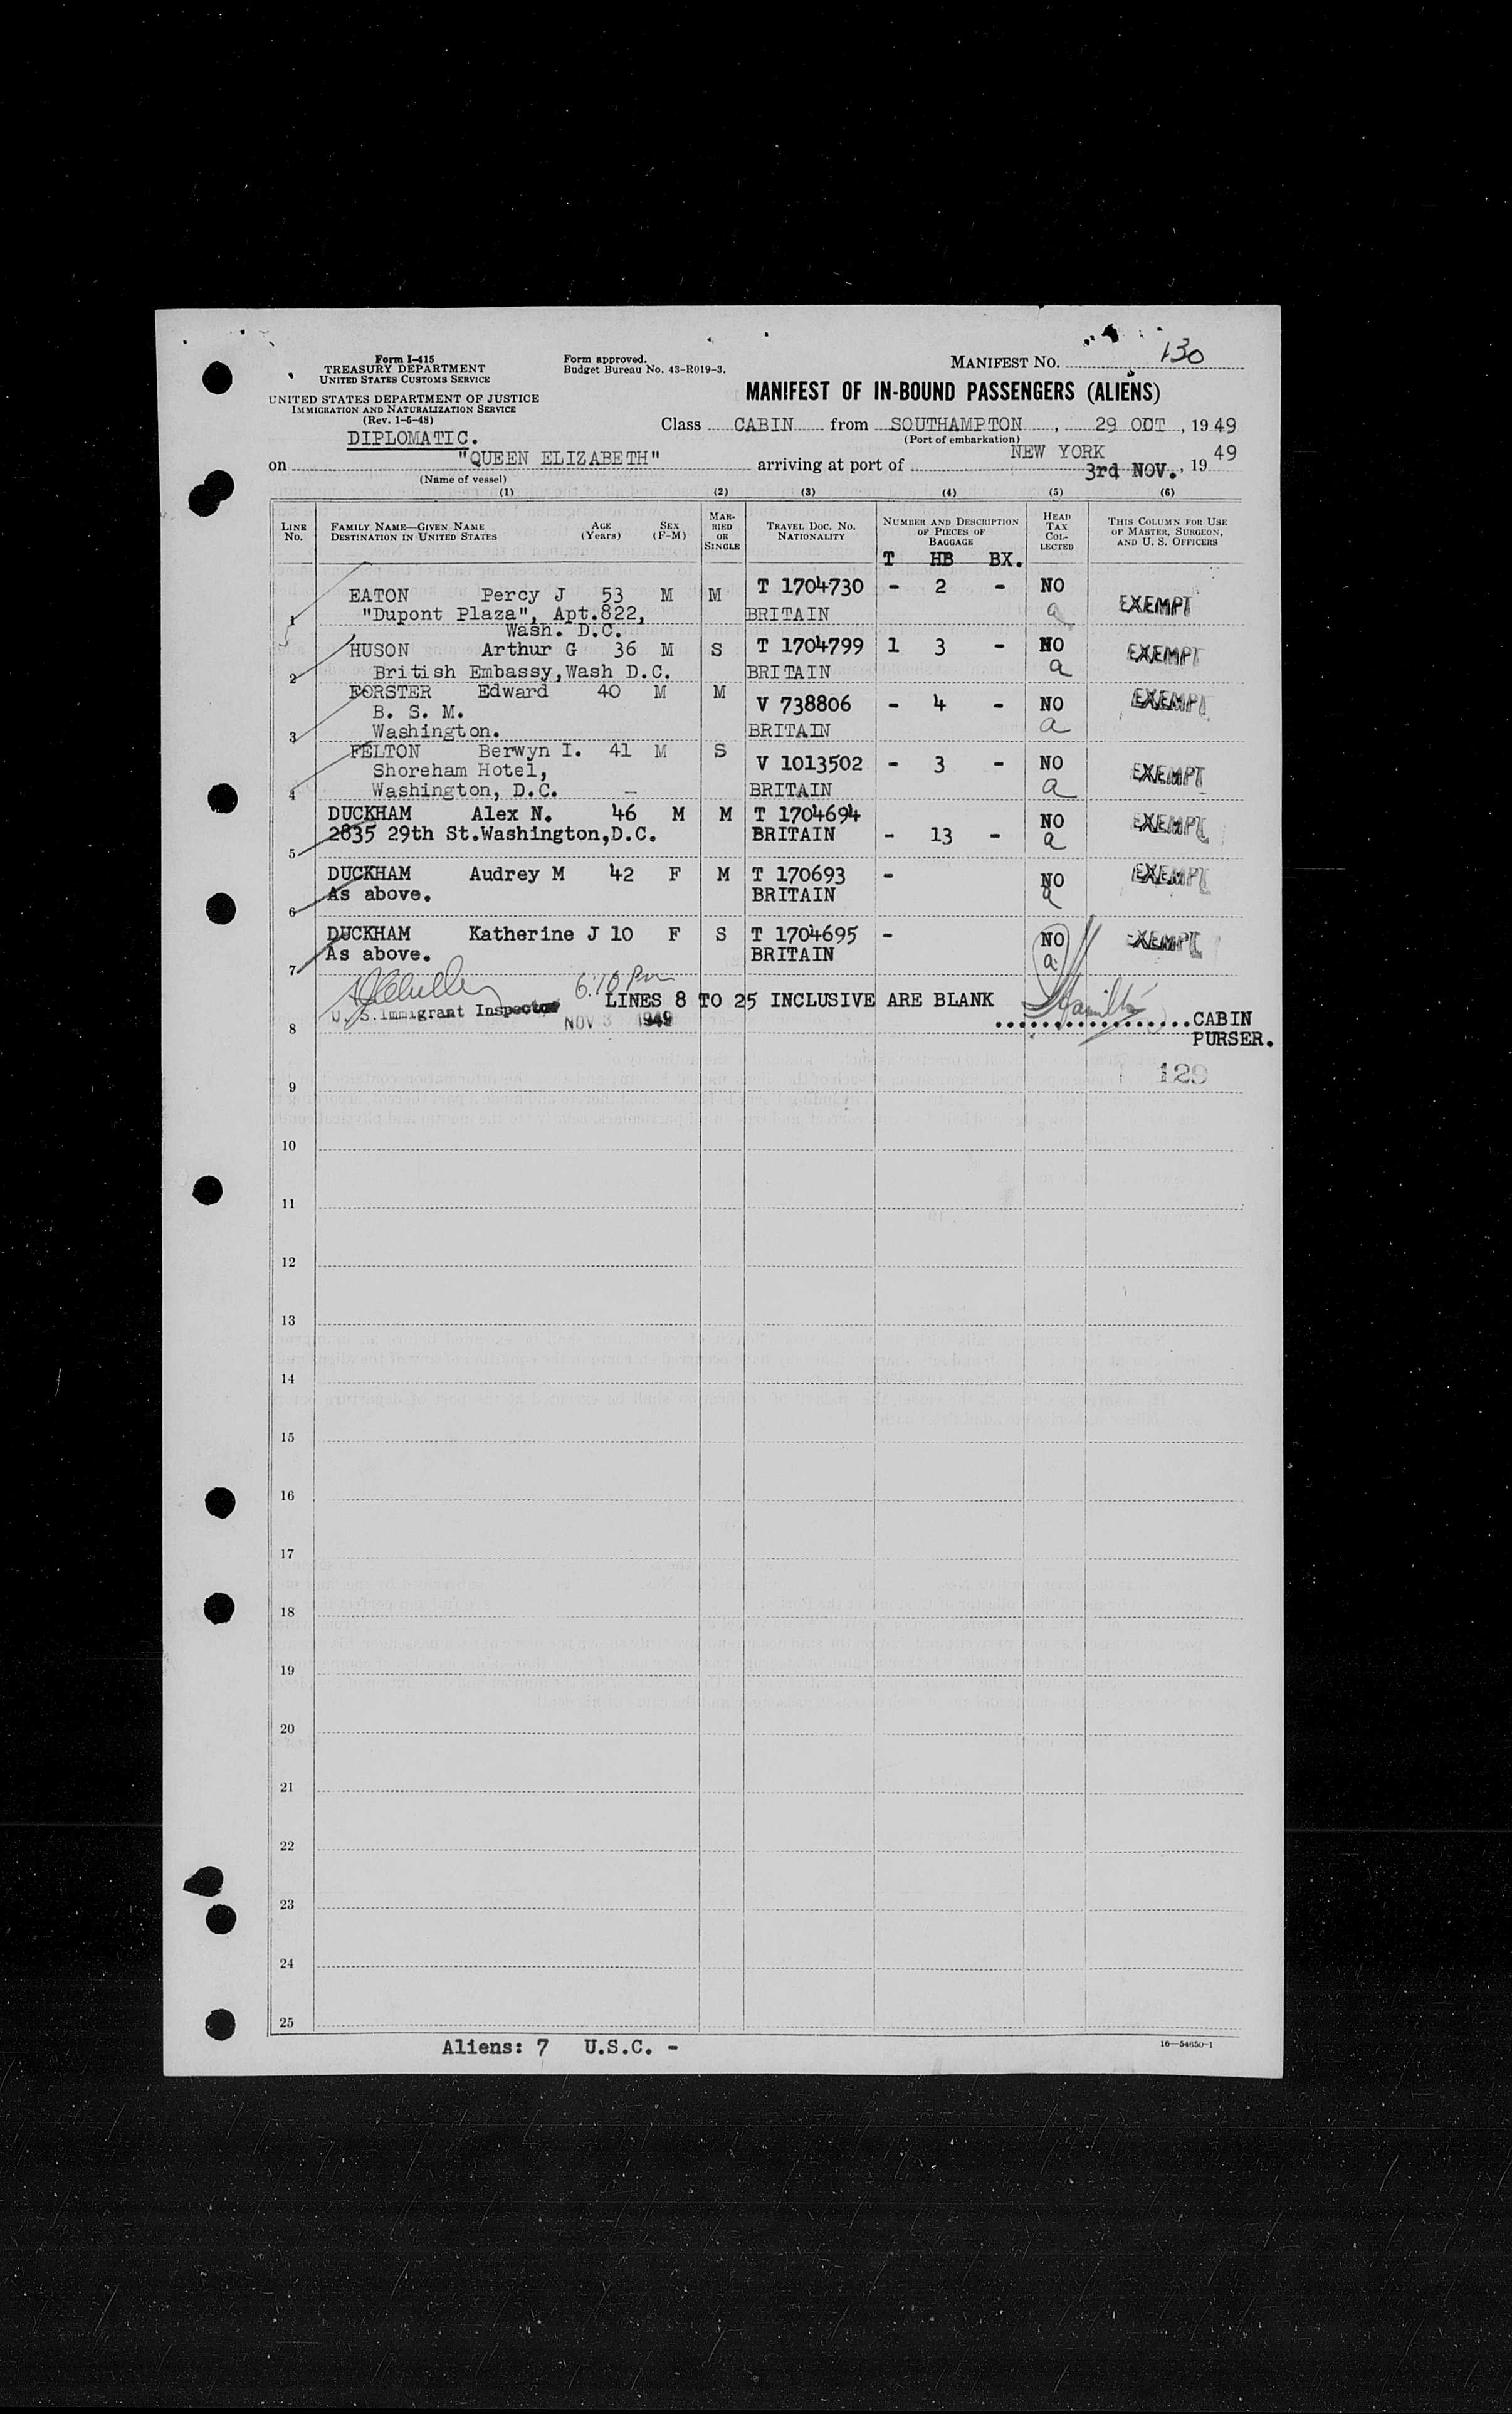 Form I-415
TREASURY DEPARTMENT
UNITED STATES CUSTOMS SERVICE
UNITED STATES DEPARTMENT OF JUSTICE
IMMIGRATION AND NATURALIZATION SERVICE
(Rev. 1-5-48)
DIPLOMATIC.
Form approved.
Budget Bureau No. 43-R019-3.
MANIFEST NO. 130
MANIFEST OF IN-BOUND PASSENGERS (ALIENS)
Class CABIN from SOUTHAMPTON, 29 OCT, 1949
(Port of embarkation)
on "QUEEN ELIZABETH" arriving at port of NEW YORK 3rd NOV., 1949
(Name of vessel)
(1) (2) (3) (4) (5) (6)
LINE NO. FAMILY NAME—GIVEN NAME DESTINATION IN UNITED STATES AGE (Years) SEX (F-M) MARRIED OR SINGLE TRAVEL DOC. NO. NATIONALITY NUMBER AND DESCRIPTION OF PIECES OF BAGGAGE HEAD TAX COLLECTED THIS COLUMN FOR USE OF MASTER, SURGEON, AND U. S. OFFICERS
T HB BX.
EATON Percy J 53 M M T 1704730 - 2 - NO
1 "Dupont Plaza", Apt.822, BRITAIN a EXEMPT
Wash. D.C.
HUSON Arthur G 36 M S T 1704799 1 3 - NO EXEMPT
2 British Embassy,Wash D.C. BRITAIN a
FORSTER Edward 40 M M V 738806 - 4 - NO EXEMPT
B. S. M.
3 Washington. BRITAIN a
FELTON Berwyn I. 41 M S V 1013502 - 3 - NO EXEMPT
Shoreham Hotel,
4 Washington, D.C. - BRITAIN a
DUCKHAM Alex N. 46 M M T 1704694 NO EXEMPT
5 2835 29th St.Washington,D.C. BRITAIN - 13 - a
DUCKHAM Audrey M 42 F M T 170693 - NO EXEMPT
6 As above. BRITAIN a
DUCKHAM Katherine J 10 F S T 1704695 - NO EXEMPT
7 As above. BRITAIN a
6:10 Pm
LINES 8 TO 25 INCLUSIVE ARE BLANK Hamilton
U. S. Immigrant Inspector
NOV 3 1949
8 CABIN
PURSER.
129
9
10
11
12
13
14
15
16
17
18
19
20
21
22
23
24
25
Aliens: 7 U.S.C. -
16—54650-1